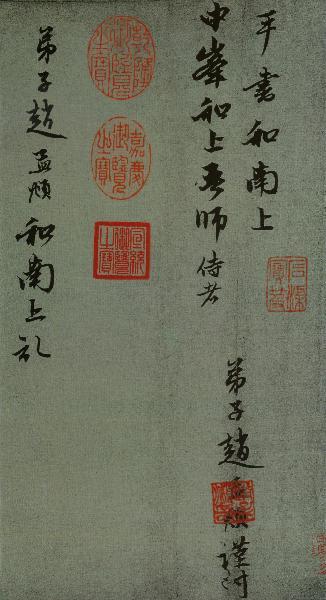 平書和南上
中峯和上吾師 侍者
石渠寶笈
弟子趙孟頫謹封
乾隆御覽之寶
嘉慶御覽之寶
宣統御覽之寶
弟子趙孟頫和南上記